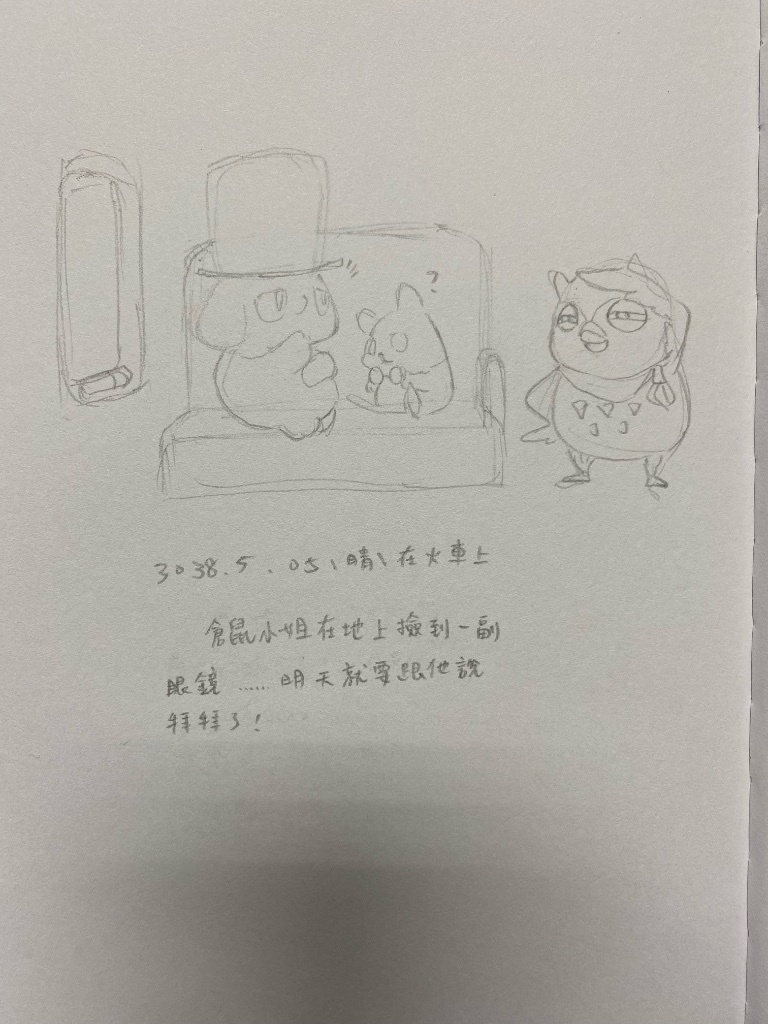 ?
3038.5.05、晴、在火車上
倉鼠小姐在地上撿到一副
眼鏡……明天就要跟他說
拜拜了!